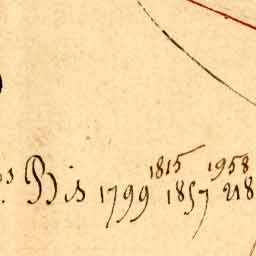 1815 1958
Bis 1799 1857 218